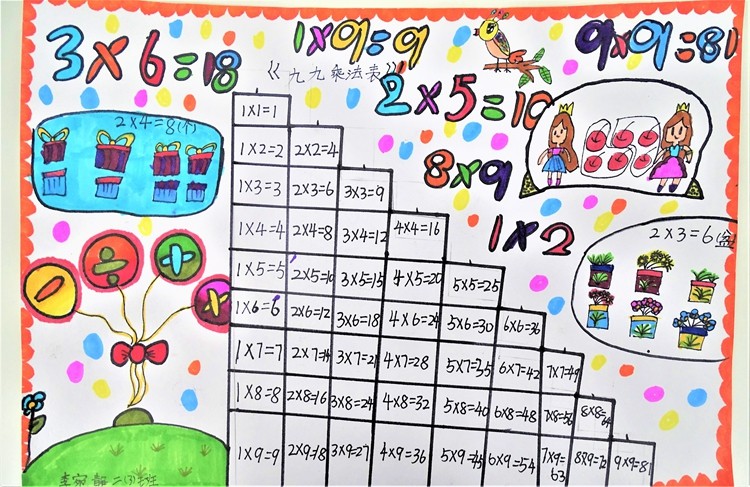 3×6=18
1×9=9
9×9=81
《九九乘法表》
2×5=10
8×9
1×2
2×4=8(个)
2×3=6(盆)
1×1=1
1×2=2 2×2=4
1×3=3 2×3=6 3×3=9
1×4=4 2×4=8 3×4=12 4×4=16
1×5=5 2×5=10 3×5=15 4×5=20 5×5=25
1×6=6 2×6=12 3×6=18 4×6=24 5×6=30 6×6=36
1×7=7 2×7=14 3×7=21 4×7=28 5×7=35 6×7=42 7×7=49
1×8=8 2×8=16 3×8=24 4×8=32 5×8=40 6×8=48 7×8=56 8×8=64
1×9=9 2×9=18 3×9=27 4×9=36 5×9=45 6×9=54 7×9=63 8×9=72 9×9=81
− ÷ + ×
二(3)班